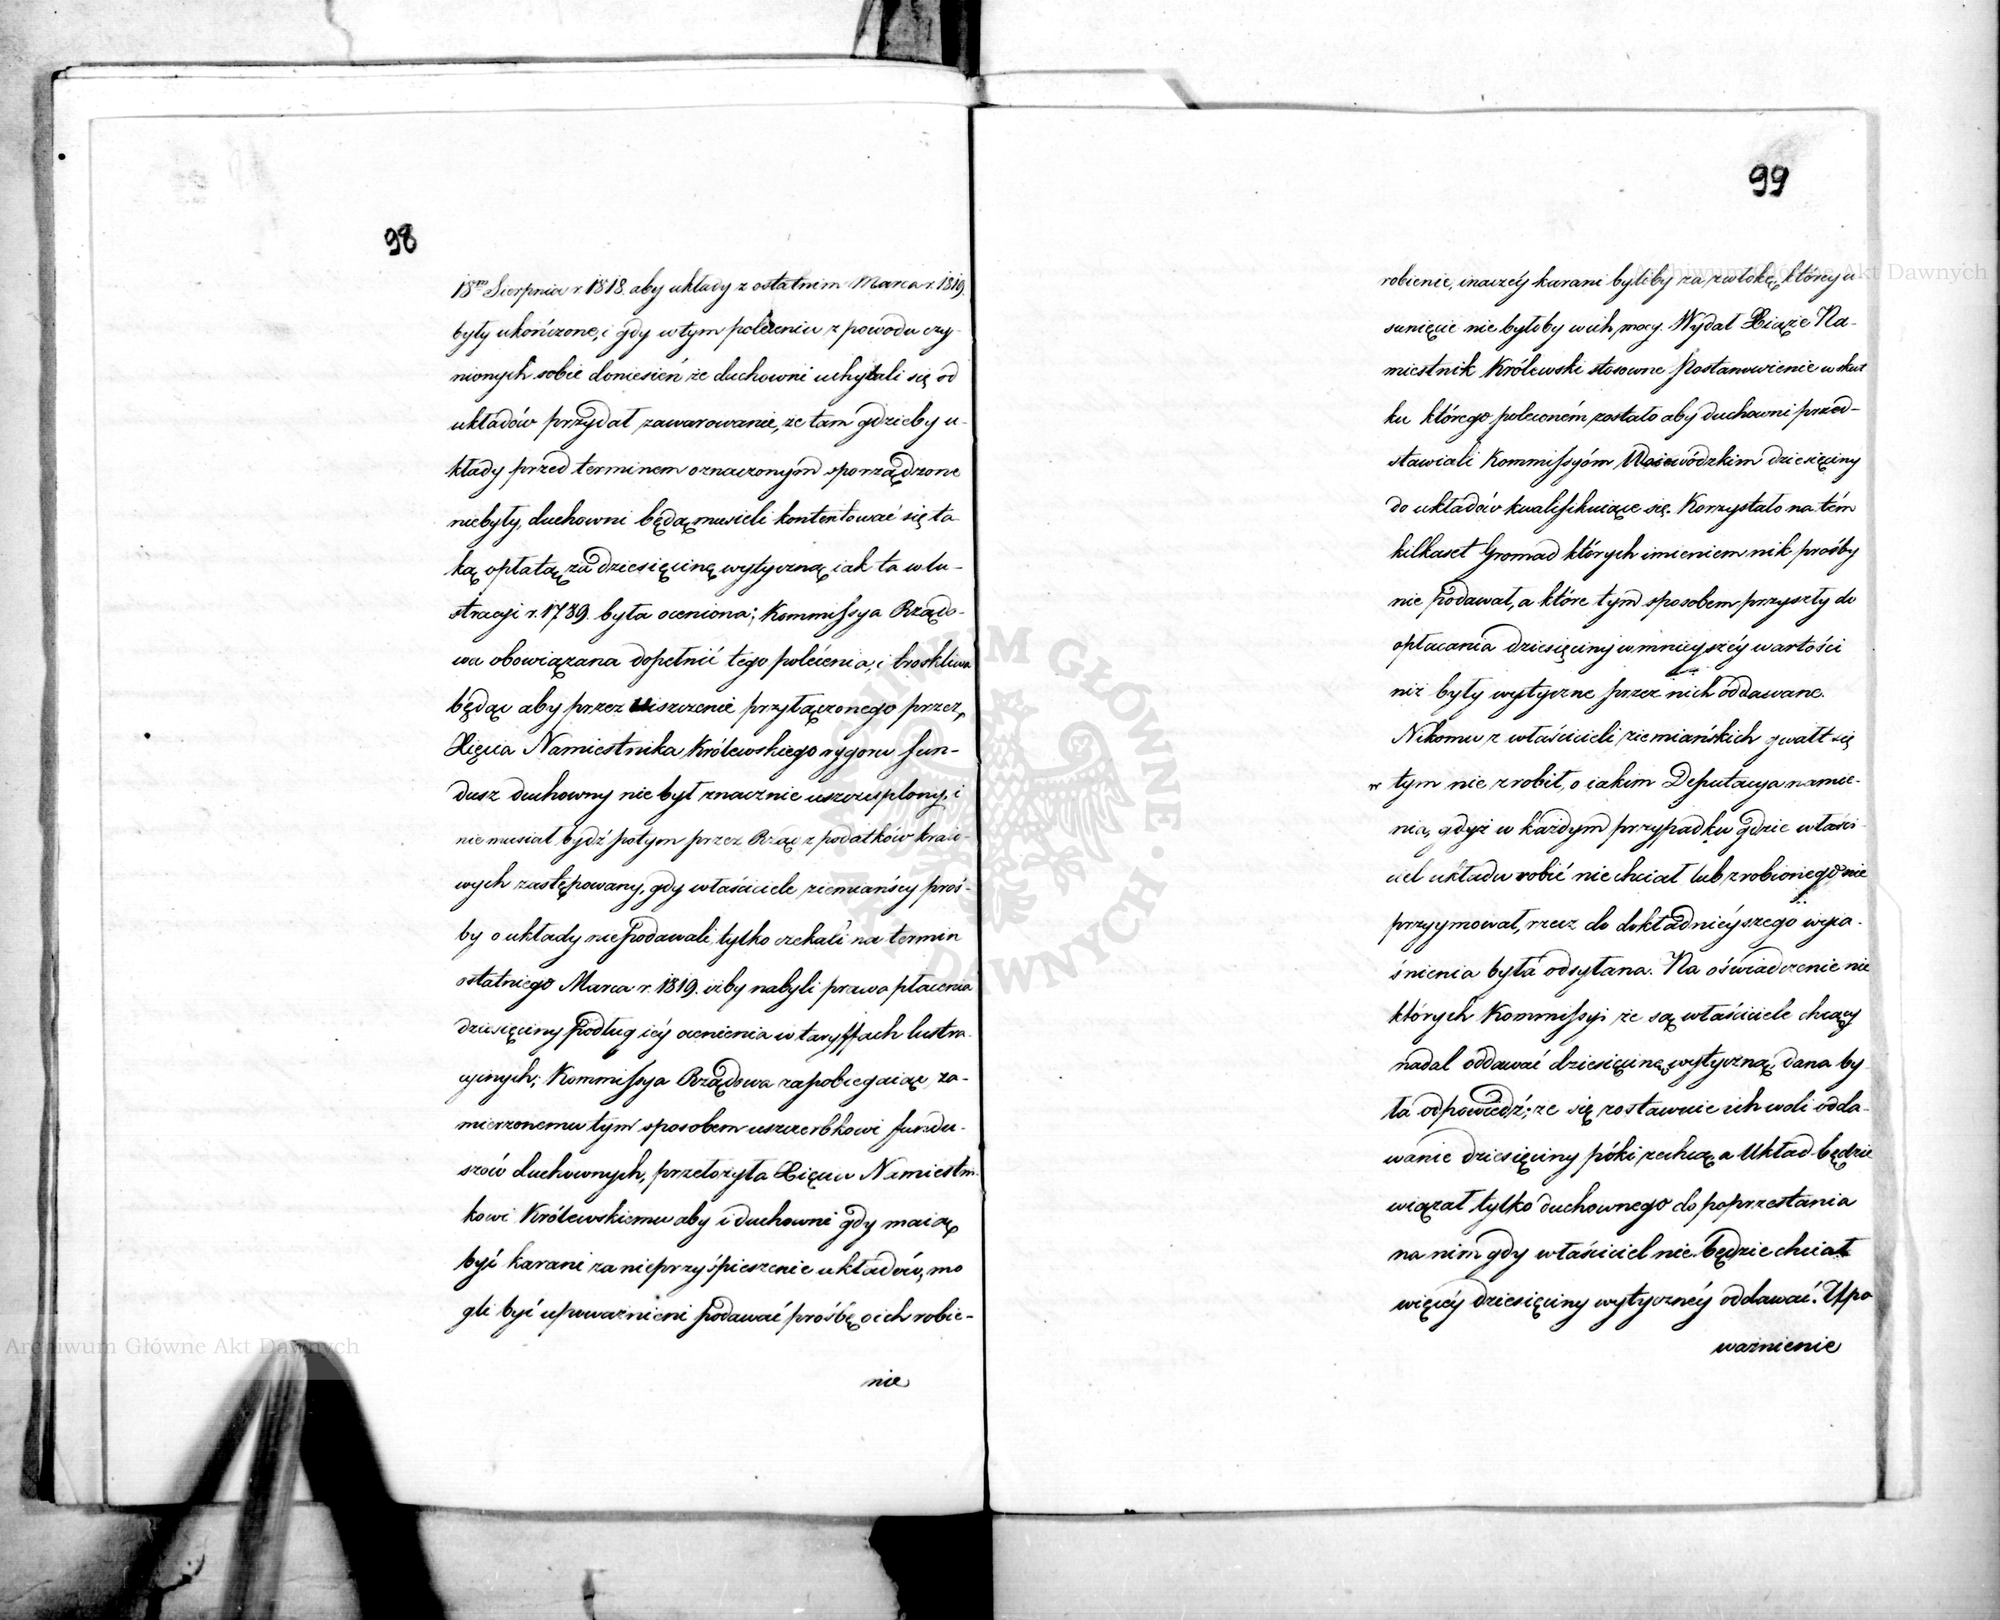 98
18ᵐ Sierpnia r. 1818. aby układy z ostatnim Marca r. 1819.
były ukończone, i gdy w tym poleceniu z powodu czy-
nionych sobie doniesień że duchowni uchylali się od
układów przydał zawarowanie, że tam gdzieby u-
kłady przed terminem oznaczonym sporządzone
niebyły, duchowni będą musieli kontentować się ta-
ką opłatą za dziesięcinę wytyczną iak ta w lu-
stracyi r. 1789. była oceniona; Kommissya Rządo-
wa obowiązana dopełnić tego polecenia, i troskliwa
będąc aby przez uiszczenie przyłączonego przez
Xięcia Namiestnika Królewskiego rygoru fun-
dusz duchowny nie był znacznie uszczuplony, i
nie musiał bydź potym przez Rząd z podatków kraio-
wych zastępowany, gdy właściciele ziemiańscy proś-
by o układy nie podawali, tylko czekali na termin
ostatniego Marca r. 1819. iżby nabyli prawa płacenia
dziesięciny podług iéy ocenienia w taryffach lustra-
cyinych; Kommissya Rządowa zapobiegaiąc za-
mierzonemu tym sposobem uszczerbkowi fundu-
szów duchownych, przełożyła Xięciu Namiestni-
kowi Królewskiemu aby i duchowni gdy maią
być karani za nieprzyśpieszenie układów, mo
gli być upoważnieni podawać prośbę o ich robie-
nie
99
robienie, inaczéy karani byliby za zwłokę, któréy u
sunięcie nie byłoby w ich mocy. Wydał Xiąże Na-
miestnik Królewski stosowne Postanowienie w skut
ku którego poleconém zostało aby duchowni przed-
stawiali Kommissyóm Woiewódzkim dziesięciny
do układów kwalifikuiące się. Korzystało na tém
kilkaset Gromad których imieniem nik prośby
nie podawał, a które tym sposobem przyszły do
opłacania dziesięciny w mnieyszéy wartości
niż były wytyczne przez nich oddawane.
Nikomu z właścicieli ziemiańskich gwałt się
w tym nie zrobił, o iakim Deputacya namie-
nia, gdyż w każdym przypadku gdzie właści-
ciel układu robić nie chciał lub zrobionego nie
przyymował, rzecz do dokładnieyszego wyia-
śnienia była odsyłana. Na oświadczenie nie
których Kommissyi że są właściciele chcący
nadal oddawać dziesięcinę wytyczną, dana by-
ła odpowiedź; że się zostawuie ich woli odda-
wanie dziesięciny póki zechcą, a Układ będzie
wiązał tylko duchownego do poprzestania
na nim gdy właściciel nie będzie chciał
więcéy dziesięciny wytycznéy oddawać. Upo
ważnienie
Archiwum Główne Akt Dawnych
Archiwum Główne Akt Dawnych
ARCHIWUM GŁÓWNE AKT DAWNYCH